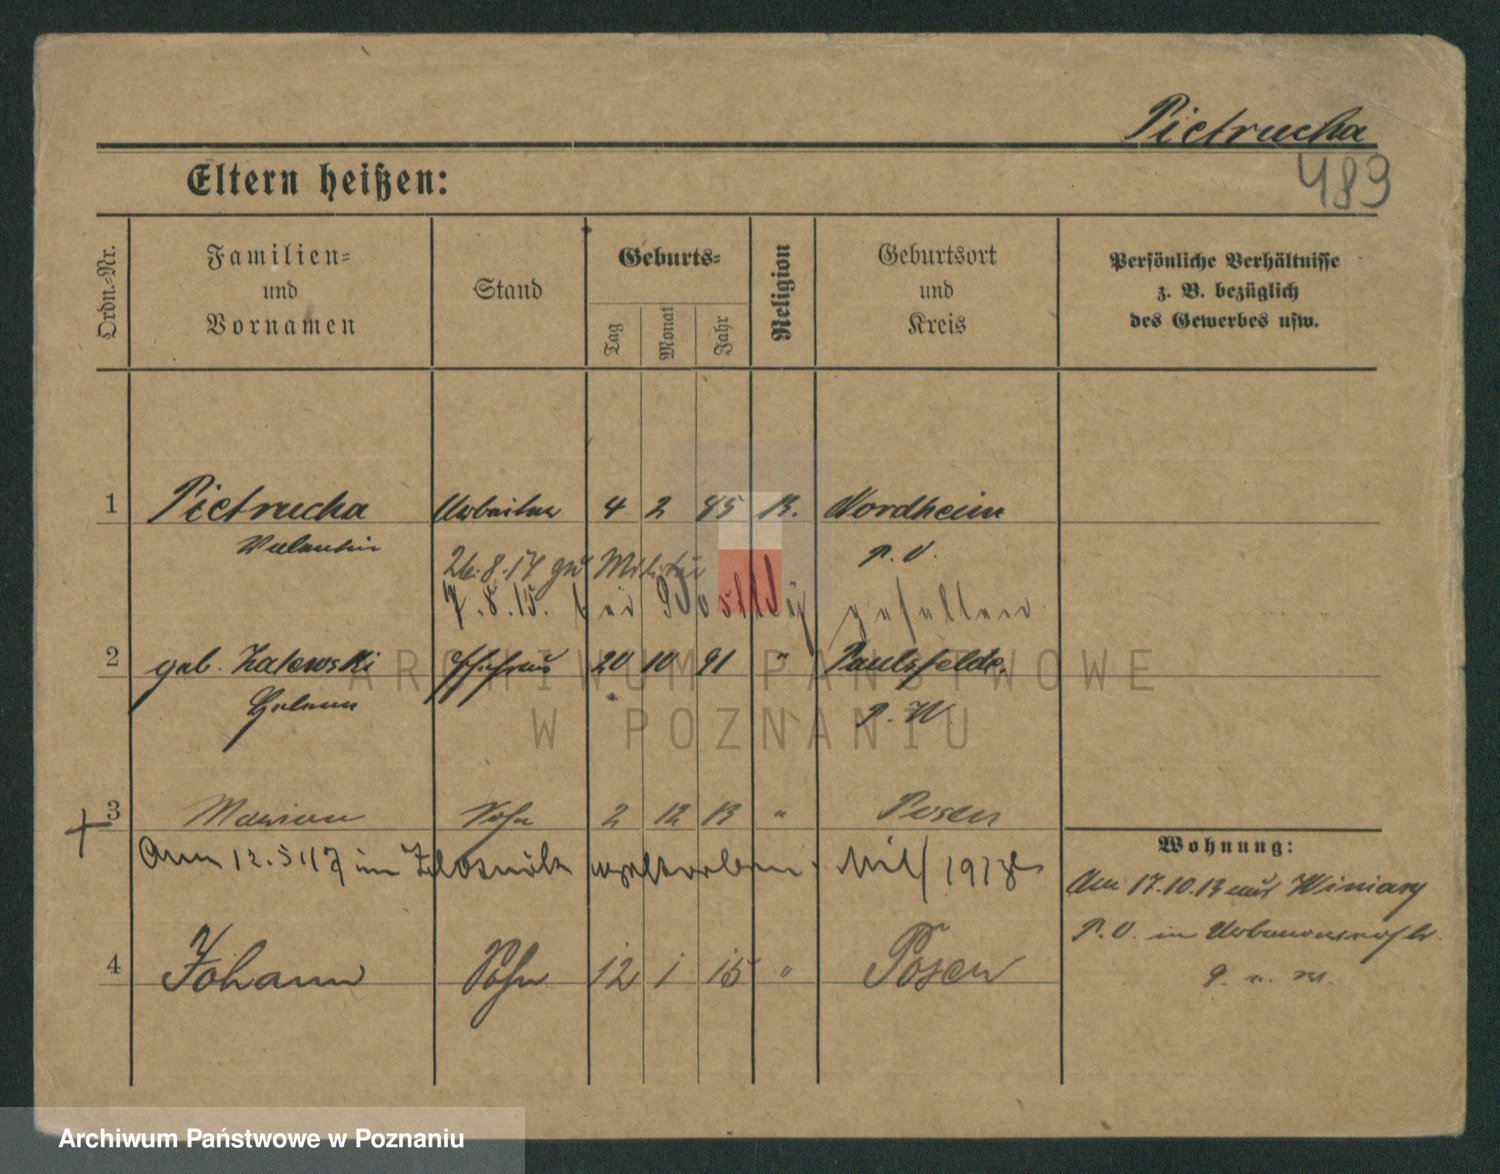 Pietrucha
Eltern heißen:
483
Ordn.-Nr.
Familien-
und
Vornamen
Stand
Geburts-
Tag
Monat
Jahr
Religion
Geburtsort
und
Kreis
Persönliche Verhältnisse
z. B. bezüglich
des Gewerbes usw.
1 Pietrucha Arbeiter 4 2 85 K. Nordheim
Valentin P. O.
26.8.14 zu Militär
7.8.15. bei gefallen
2 geb. Zalewski Ehefrau 20 10 91 " Paulsfelde.
Helene P. W
3 Marian Sohn 2 12 13 " Posen
Am 12.5 17 im gestorben.
4 Johann Sohn 12 1 15 " Posen
Wohnung:
Am 17.10.13 aus Winiary
P. O. in
9.
ARCHIWUM PAŃSTWOWE
W POZNANIU
Archiwum Państwowe w Poznaniu